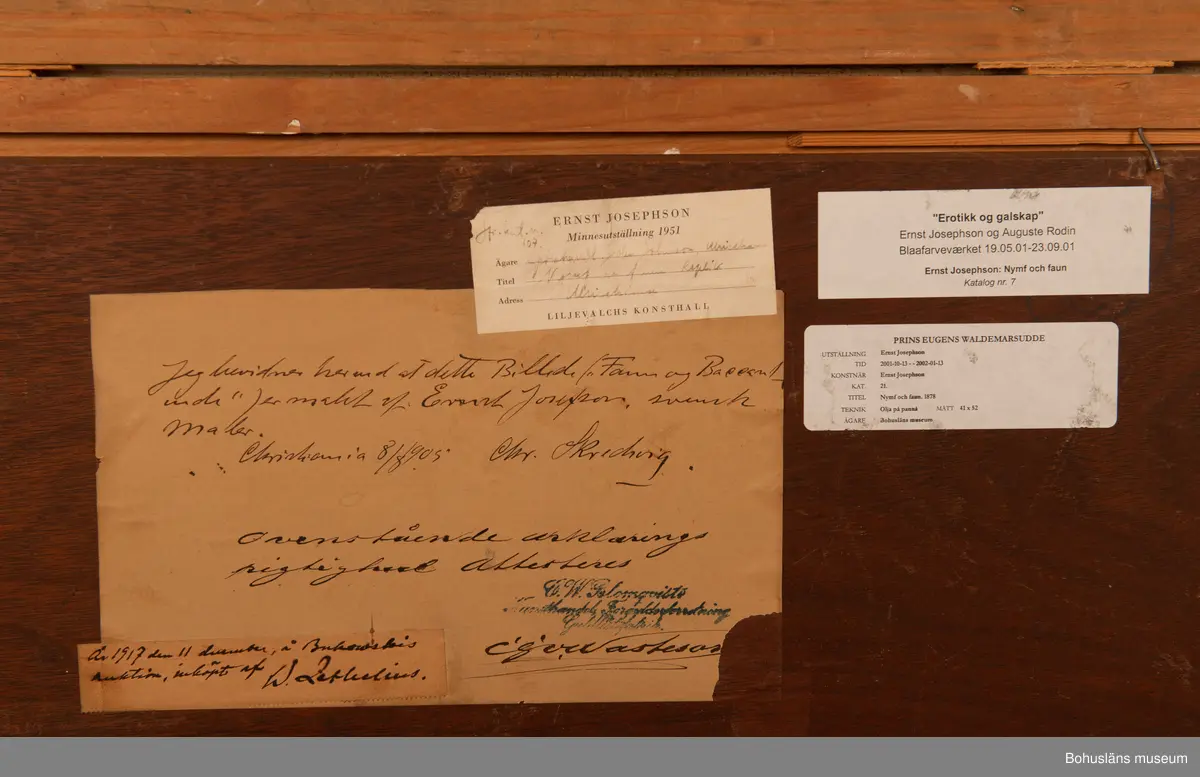 ERNST JOSEPHSON
Minnesutställning 1951
107.
Ägare
Titel
Adress
LILJEVALCHS KONSTHALL
"Erotikk og galskap"
Ernst Josephson og Auguste Rodin
Blaafarveværket 19.05.01-23.09.01
Ernst Josephson: Nymf och faun
Katalog nr. 7
PRINS EUGENS WALDEMARSUDDE
UTSTÄLLNING Ernst Josephson
TID 2001-10-13 - - 2002-01-13
KONSTNÄR Ernst Josephson
KAT. 21.
TITEL Nymf och faun. 1878
TEKNIK Olja på pannå MÅTT 41 x 52
ÄGARE Bohusläns museum
Jeg bevidner herved at dette Billede "Faun og Baccant
inde" er malet af Ernst Josefson, svensk
Maler.
Christiania 8/ 1905 Chr. Skredsvig
Ovenstående erklærings
rigtighed Attesteres
C. W. Blomqvists
Kunsthandel
År 1917 den 11 december, å Bukowskis
auktion, inköpt af W. Zethelius.
Bohusläns museum